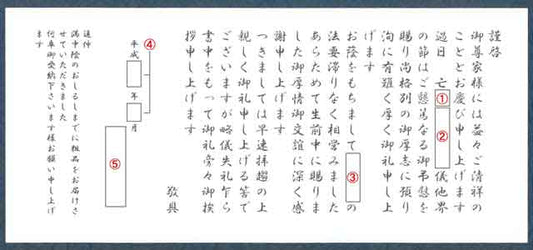 謹啓
御尊家様には益々ご清祥の
こととお慶び申し上げます
過日 亡①②儀他界
の節はご懇篤なる御弔慰を
賜り尚格別の御厚志に預り
洵に有難く厚く御礼申し上
げます
お蔭をもちまして③の
法要滞りなく相営みました
あらためて生前中に賜りま
した御厚情御交誼に深く感
謝申し上げます
つきましては早速拝趨の上
親しく御礼申し上げる筈で
ございますが略儀失礼乍ら
書中をもって御礼旁々御挨
拶申し上げます
敬具
④
平成 年 月
⑤
追伸
満中陰のおしるしまでに粗品をお届けさ
せていただきました
何卒御受納下さいます様お願い申し上げ
ます